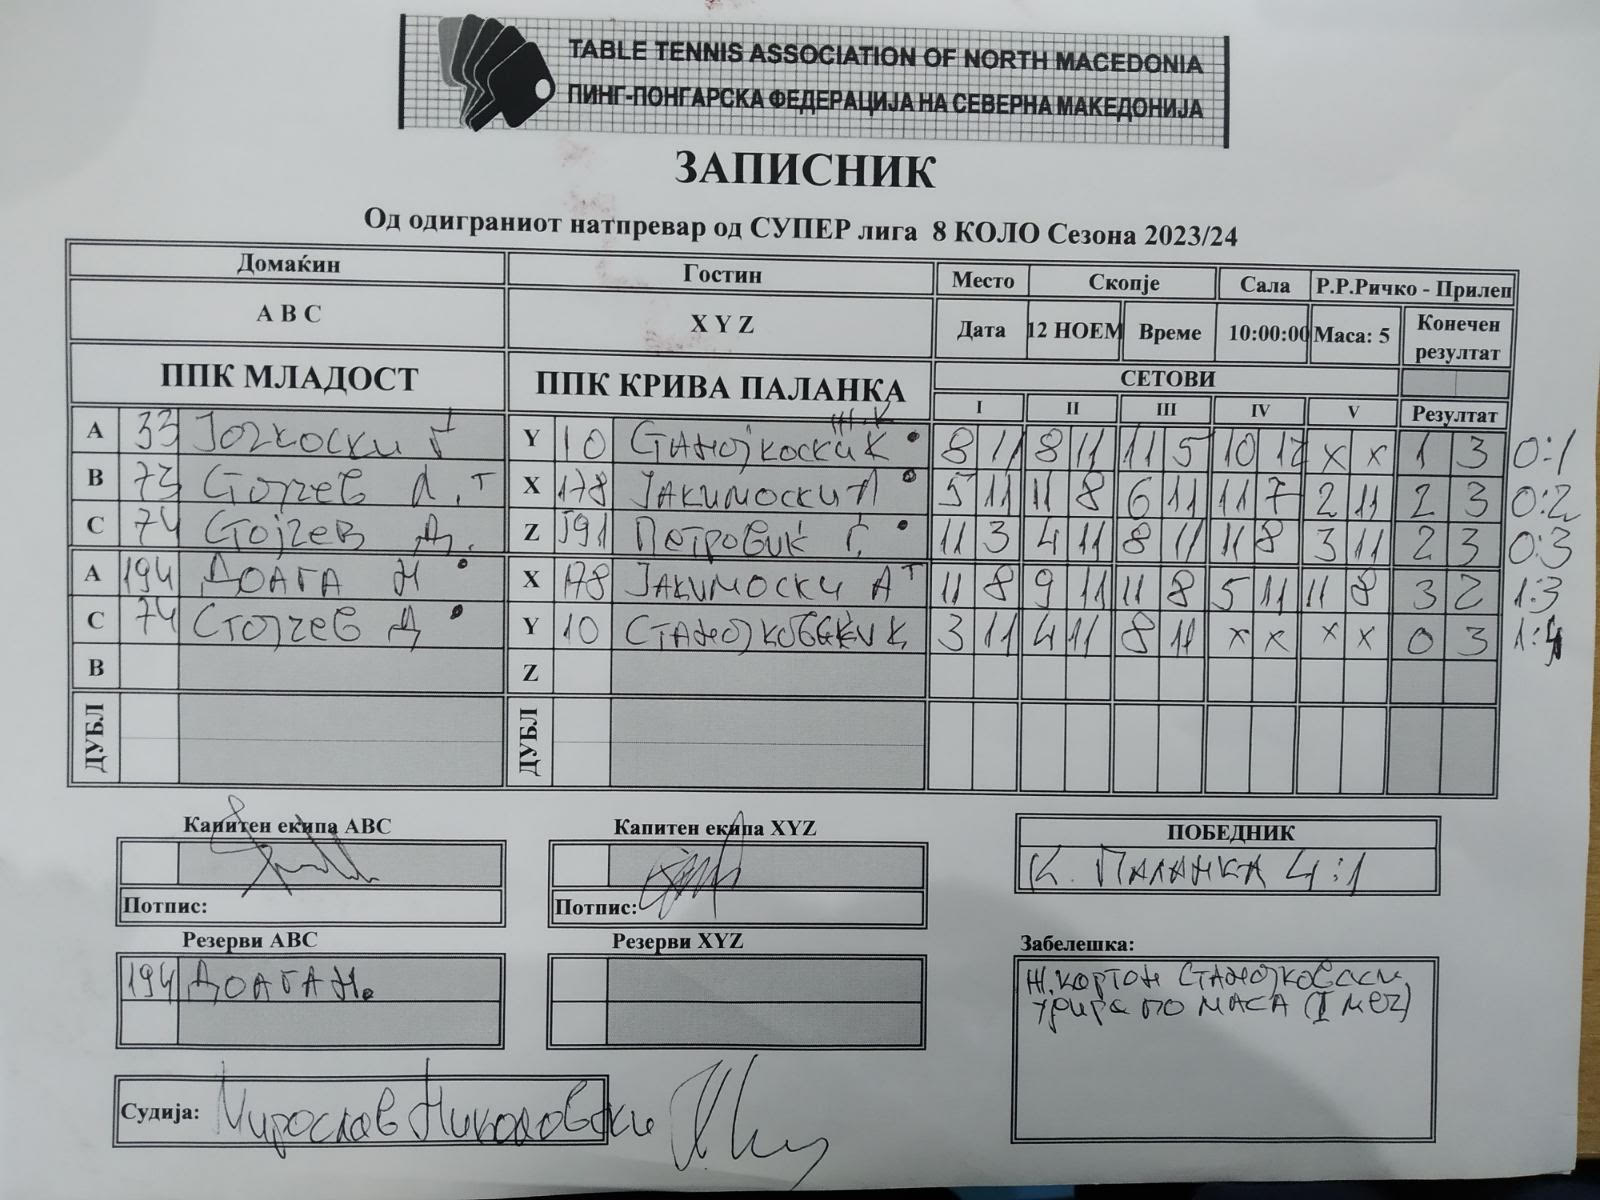 TABLE TENNIS ASSOCIATION OF NORTH MACEDONIA
ПИНГ-ПОНГАРСКА ФЕДЕРАЦИЈА НА СЕВЕРНА МАКЕДОНИЈА
ЗАПИСНИК
Од одиграниот натпревар од СУПЕР лига 8 КОЛО Сезона 2023/24
Домаќин Гостин Место Скопје Сала Р.Р.Ричко - Прилеп
A B C X Y Z Дата 12 НОЕМ Време 10:00:00 Маса: 5 Конечен резултат
ППК МЛАДОСТ ППК КРИВА ПАЛАНКА СЕТОВИ
I II III IV V Резултат
Ж.К
A 33 Јочкоски Y 10 Станојкоски К 8 11 8 11 11 5 10 12 x x 1 3 0:1
B 73 Стојчев Л. Т X 178 Јакимоски А 5 11 11 8 6 11 11 7 2 11 2 3 0:2
C 74 Стојчев Д. Z 591 Петровиќ Г. 11 3 4 11 8 11 11 8 3 11 2 3 0:3
A 194 ДОАГА Н X 178 Јакимоски А Т 11 8 9 11 11 8 5 11 11 8 3 2 1:3
C 74 Стојчев Д Y 10 3 11 4 11 8 11 x x x x 0 3 1:4
B Z
ДУБЛ ДУБЛ
Капитен екипа ABC Капитен екипа XYZ ПОБЕДНИК
К. ПАЛАНКА 4:1
Потпис: Потпис:
Резерви ABC Резерви XYZ Забелешка:
194 ДОАГА Н.
Ж.картон Станојковски
по МАСА (I меч)
Судија: Мирослав Николовски